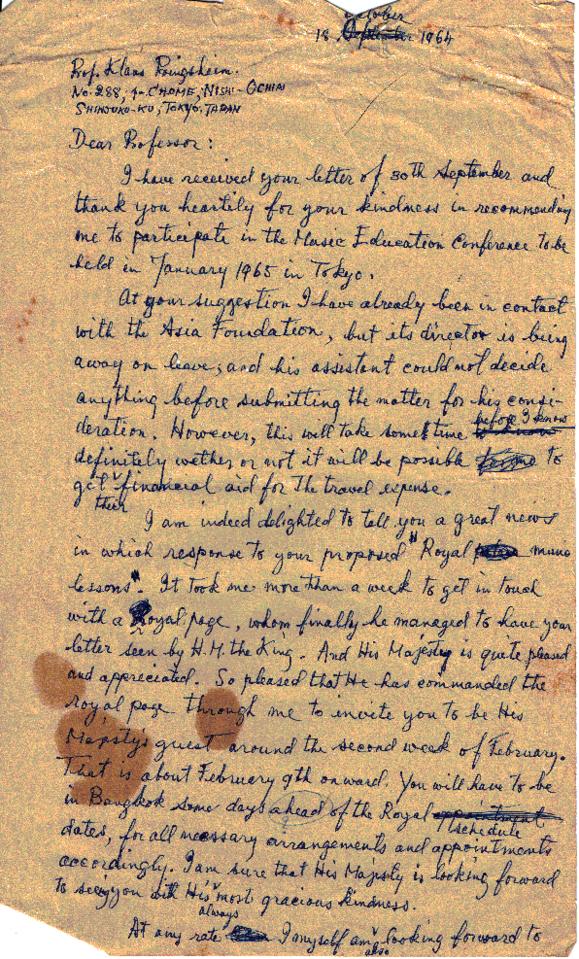 October
18. September 1964
Prof. Klaus Pringsheim.
No. 288, 4-CHOME, NISHI-OCHIAI
SHINJUKU-KU, TOKYO. JAPAN
Dear Professor:
I have received your letter of 30th September and
thank you heartily for your kindness in recommending
me to participate in the Music Education Conference to be
held in January 1965 in Tokyo.
At your suggestion I have already been in contact
with the Asia Foundation, but its director is being
away on leave, and his assistant could not decide
anything before submitting the matter for his consi-
deration. However, this will take some time before I know
definitely wether or not it will be possible to
get their financial aid for the travel expense.
I am indeed delighted to tell you a great news
in which response to your proposed "Royal music
lessons". It took me more than a week to get in touch
with a Royal page, whom finally he managed to have your
letter seen by H.M. the King. And His Majesty is quite pleased
and appreciated. So pleased that He has commanded the
royal page through me to invite you to be His
Majesty's guest around the second week of February.
That is about February 9th onward. You will have to be
in Bangkok some days ahead of the Royal appointment schedule
dates, for all necessary arrangements and appointments
accordingly. I am sure that His Majesty is looking forward
to seeing you with His most gracious kindness.
always
At any rate I myself am also looking forward to